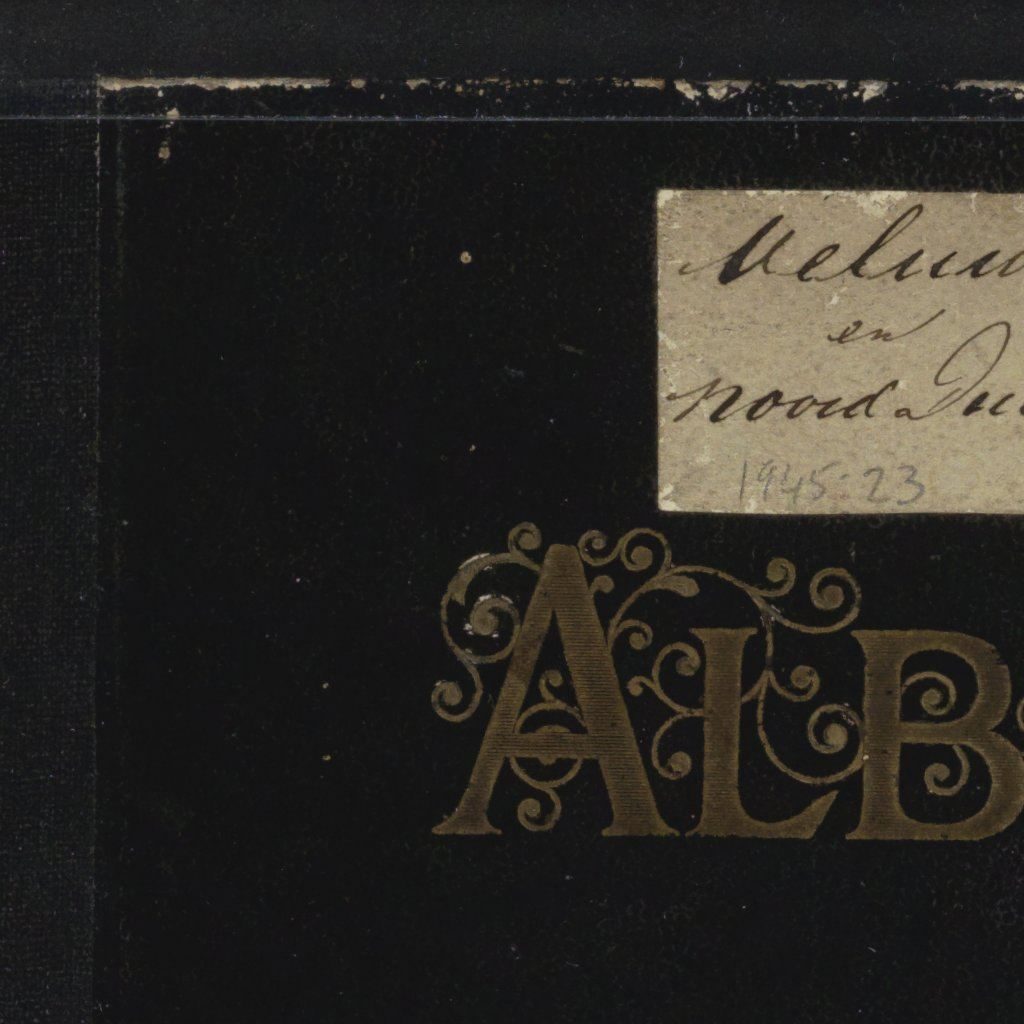 Veluw
en
noord
1945:23
ALB